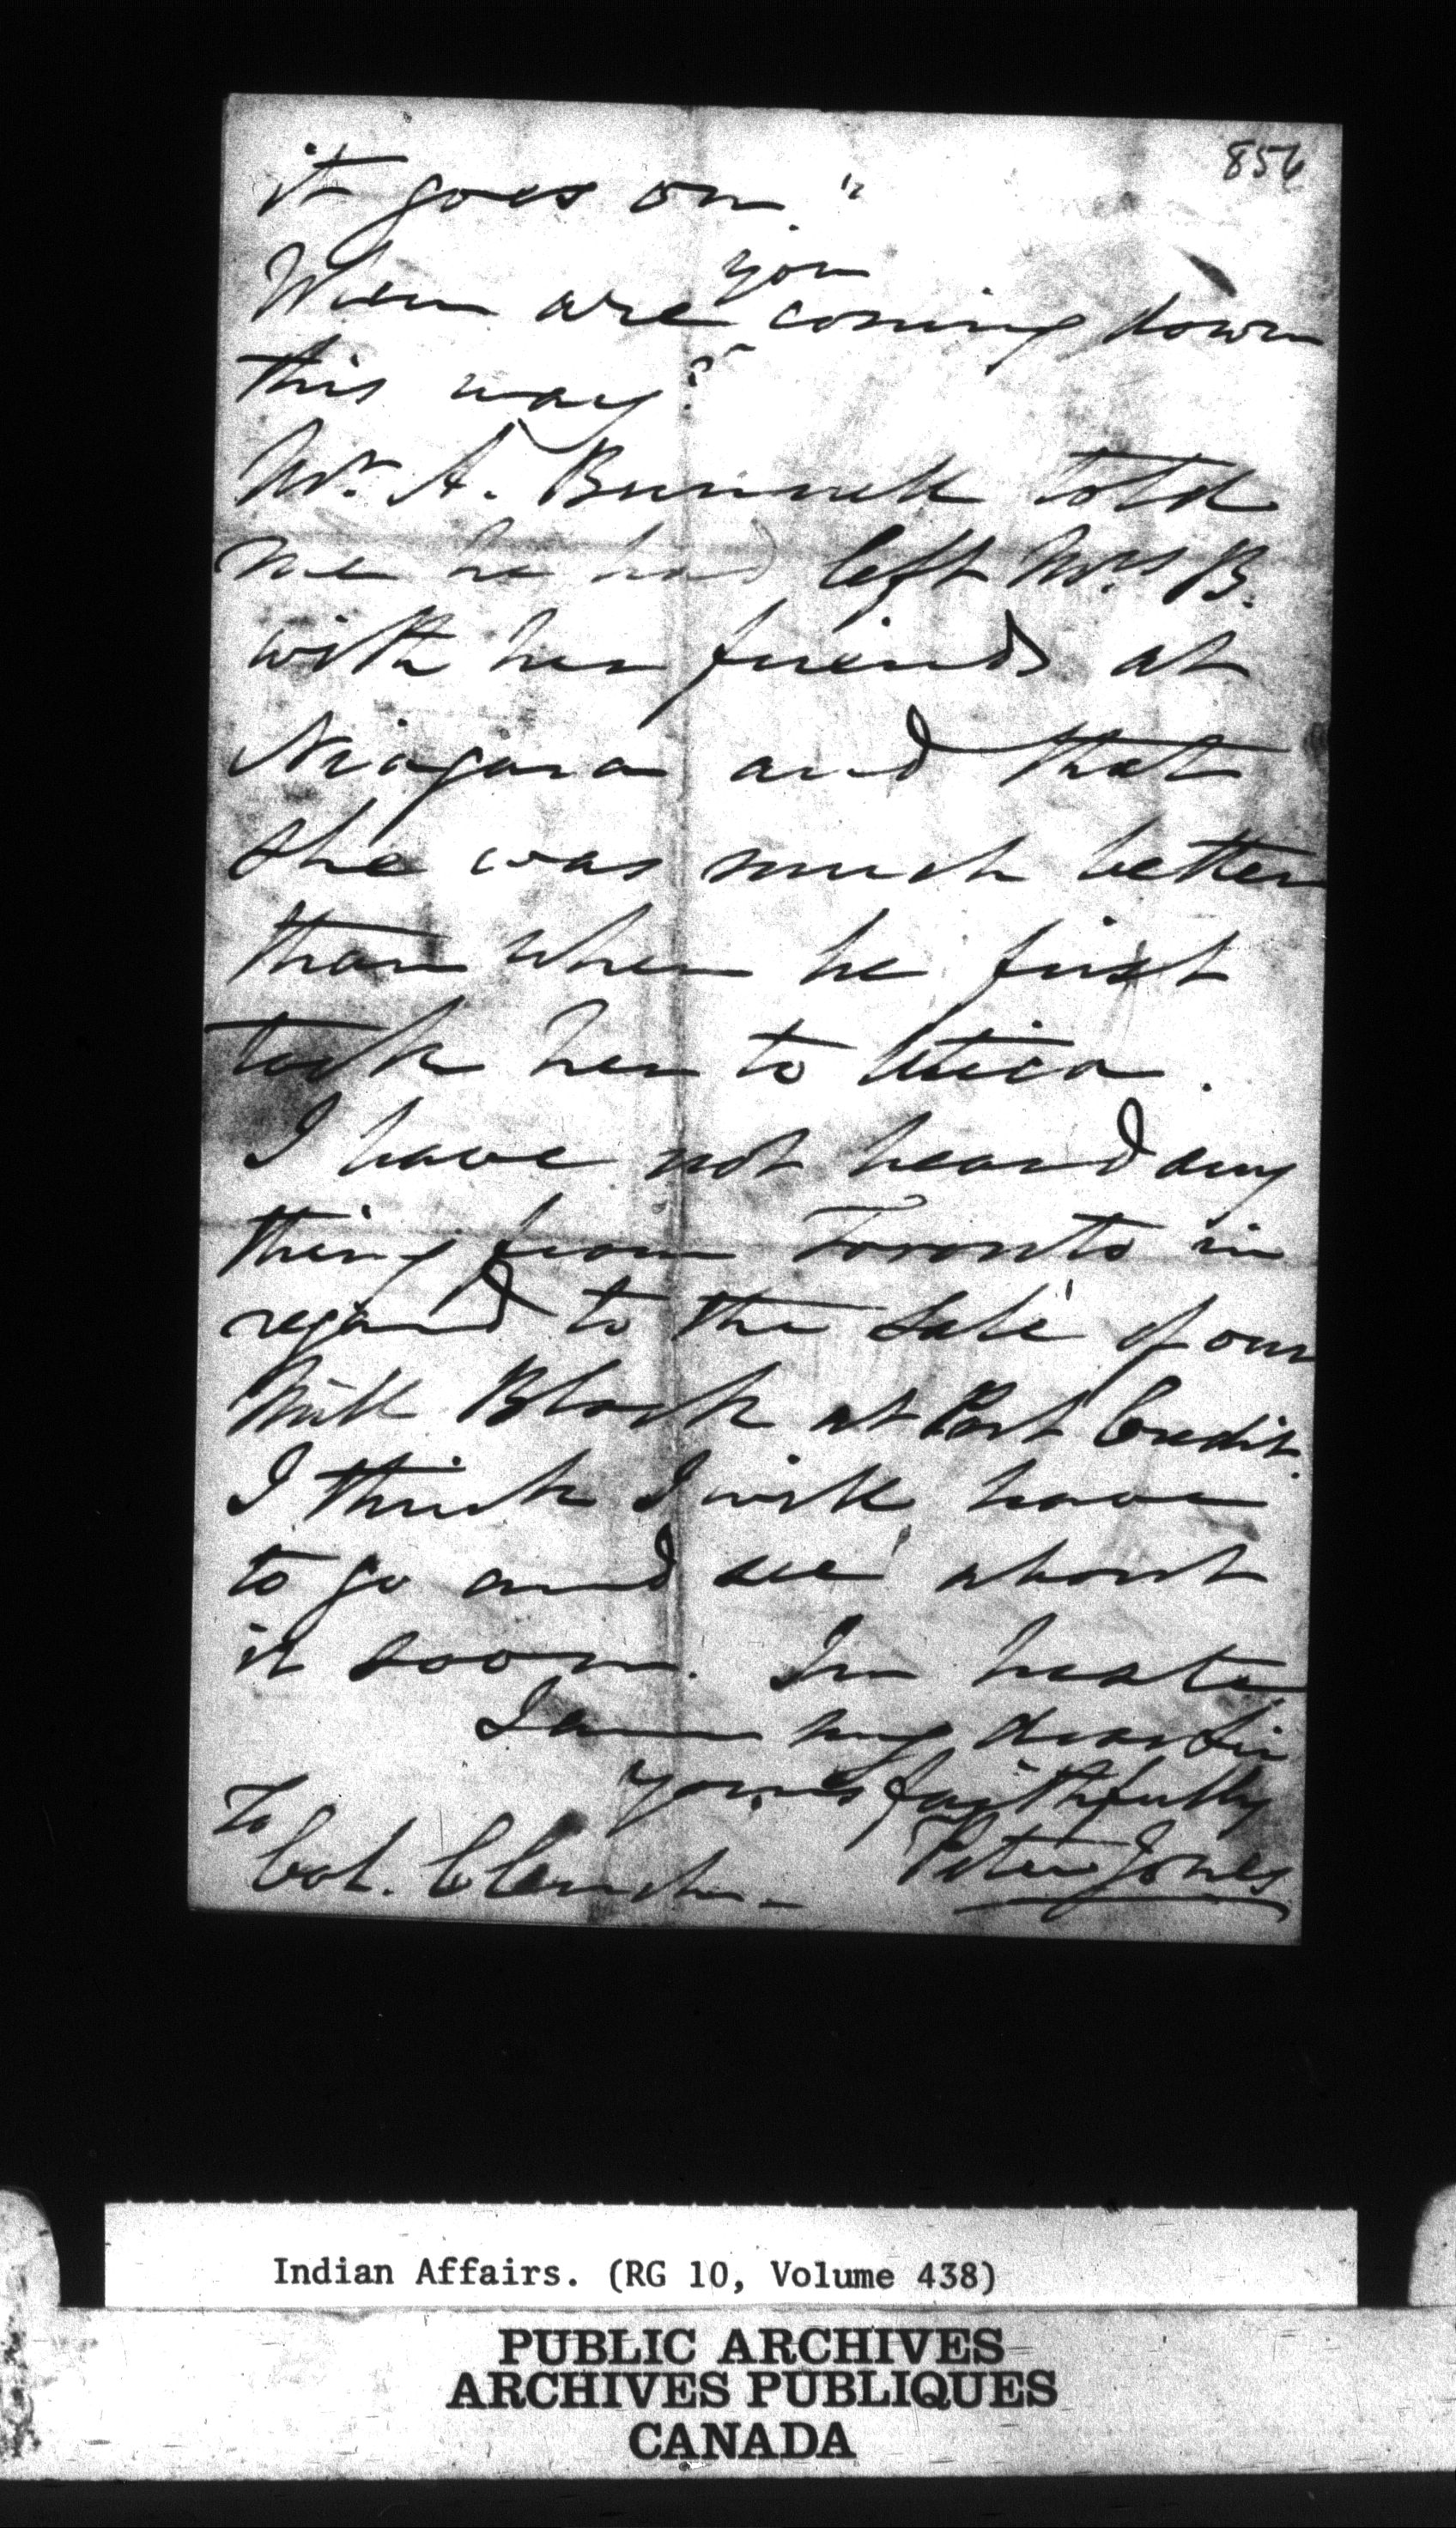 856
it goes on."
When are you coming down
this way?
Mr. A. Bunnell told
me he had left Mrs B.
with her friends at
Niagara and that
she was much better
than when he first
took her to Utica.
I have not heard any
thing from Toronto in
regard to the sale of our
Mill Block at Port Credit.
I think I will have
to go and see about
it soon. In haste
I am my dear Sir
Yours faithfully
Peter Jones
To
Col. Clench
Indian Affairs. (RG 10, Volume 438)
PUBLIC ARCHIVES
ARCHIVES PUBLIQUES
CANADA